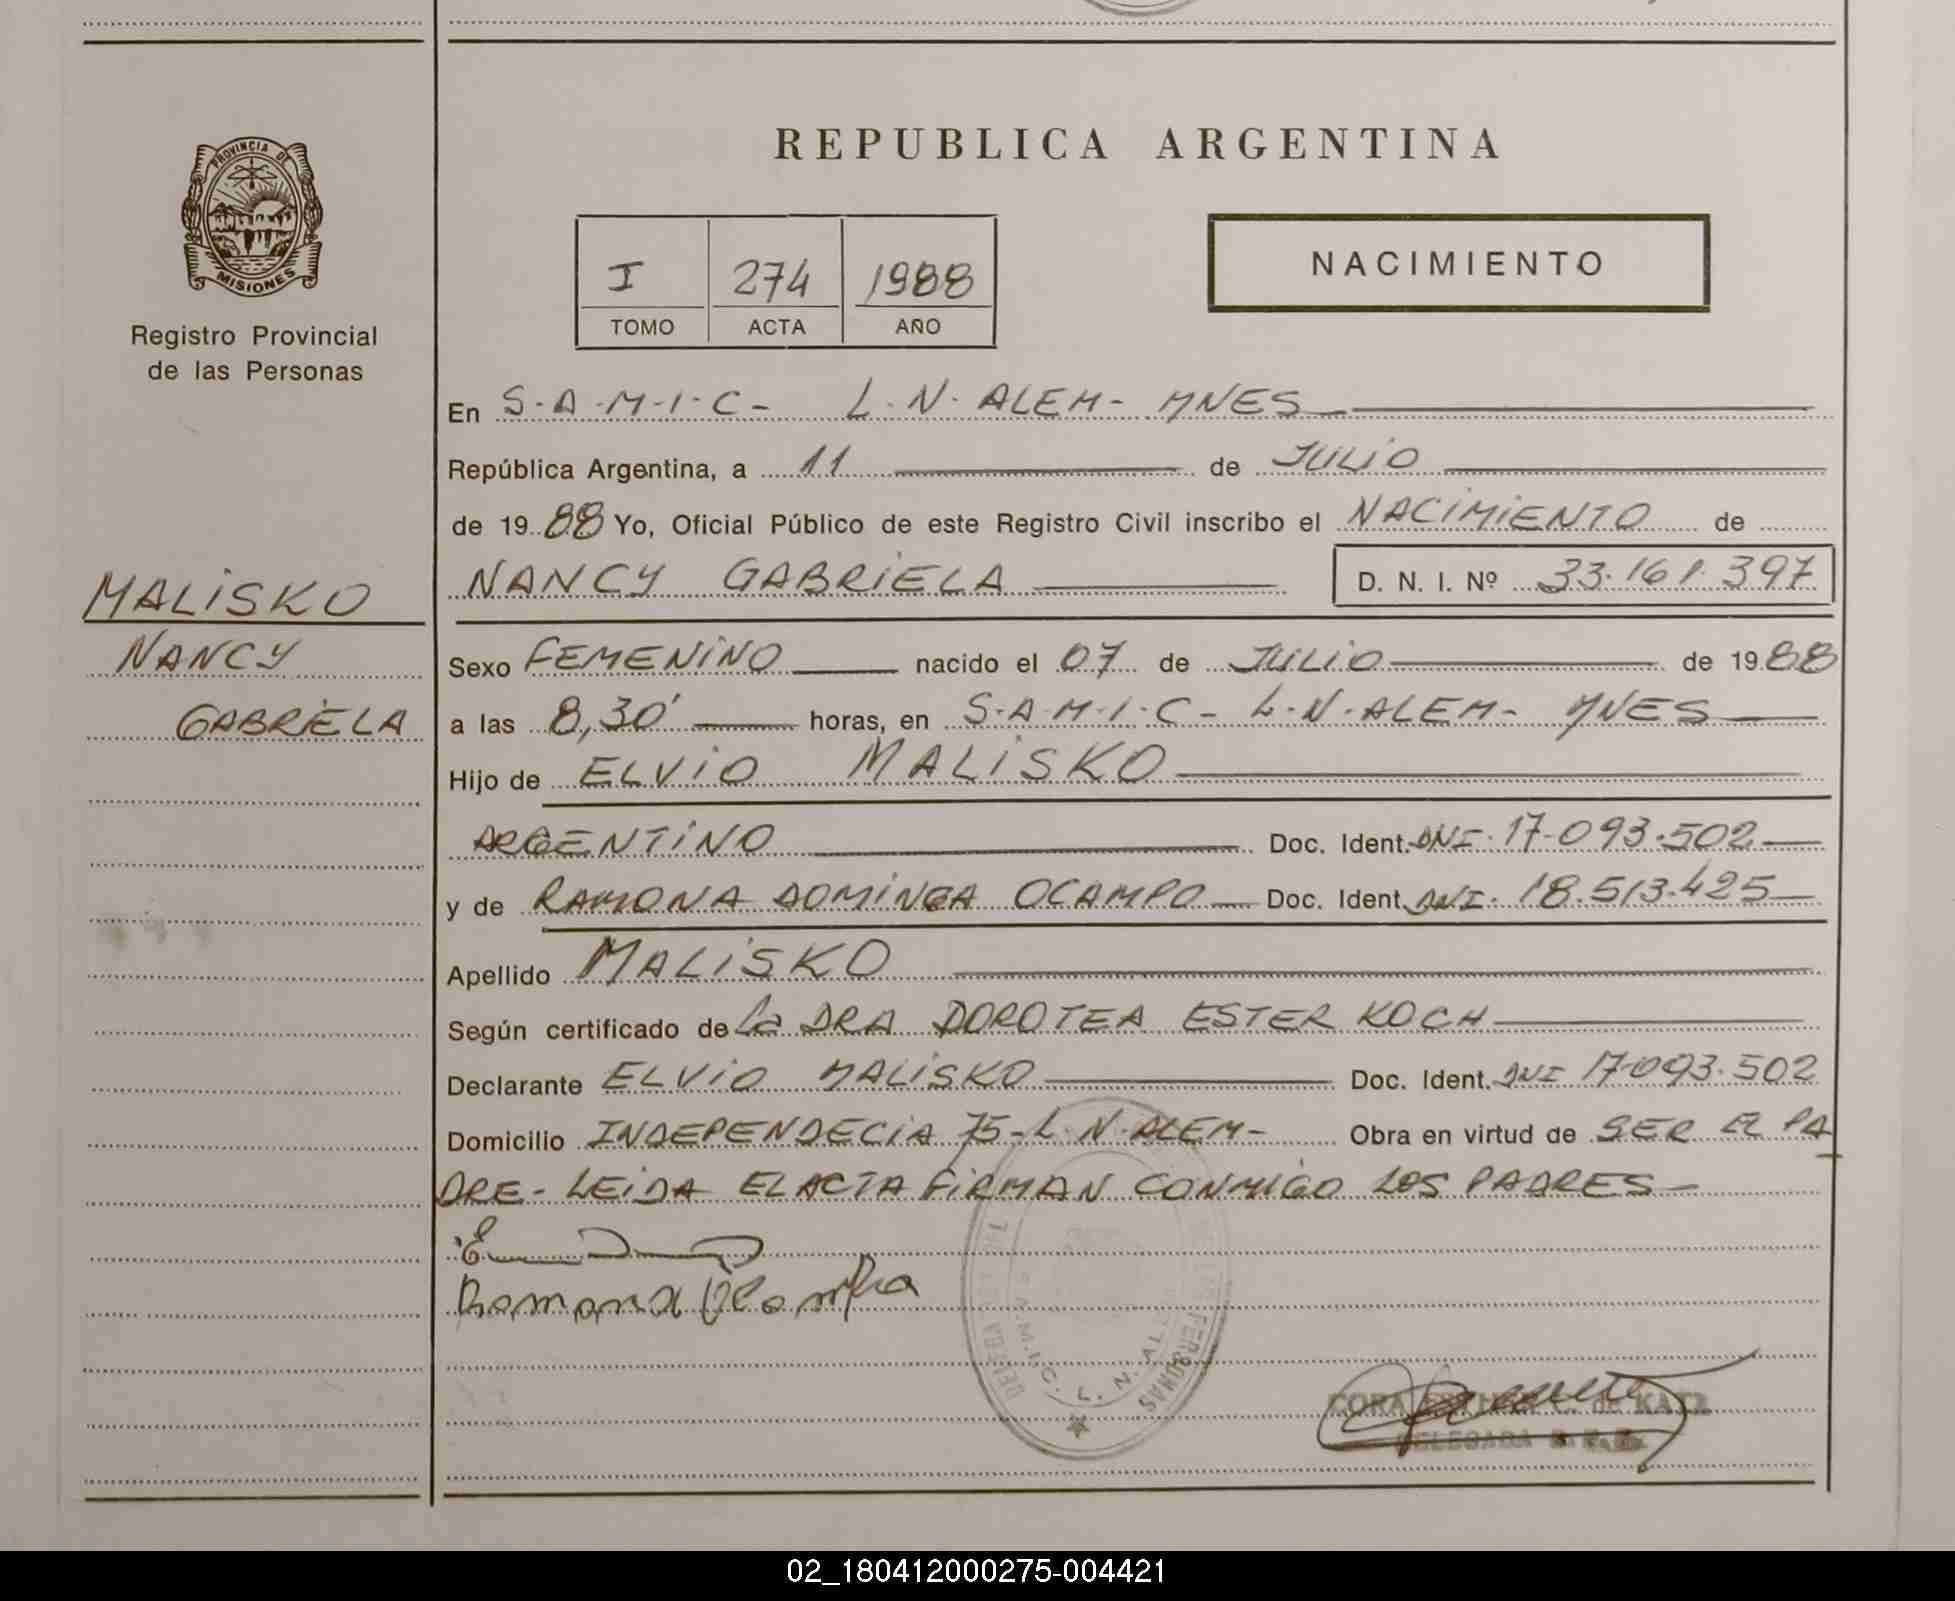 PROVINCIA DE
MISIONES
Registro Provincial
de las Personas
MALISKO
NANCY
GABRIELA
REPUBLICA ARGENTINA
I 274 1988
TOMO ACTA AÑO
NACIMIENTO
En S.A.M.I.C- L.N. ALEM- MNES
República Argentina, a 11 de JULIO
de 1988 Yo, Oficial Público de este Registro Civil inscribo el NACIMIENTO de
NANCY GABRIELA D. N. I. Nº 33.161.397
Sexo FEMENINO nacido el 07 de JULIO de 1988
a las 8,30' horas, en S.A.M.I.C- L.N.ALEM- MNES
Hijo de ELVIO MALISKO
ARGENTINO Doc. Ident. DNI. 17-093.502
y de RAMONA DOMINGA OCAMPO Doc. Ident. DNI. 18.513.425
Apellido MALISKO
Según certificado de la DRA DOROTEA ESTER KOCH
Declarante ELVIO MALISKO Doc. Ident. DNI 17-093.502
Domicilio INDEPENDECIA 75-L.N.ALEM- Obra en virtud de SER EL PA
DRE- LEIDA EL ACTA FIRMAN CONMIGO LOS PADRES-
Ramona Ocampo
S.A.M.I.C. L. N. AL
PERSONAS
CORA DE KATZ
DELEGADA
02_180412000275-004421